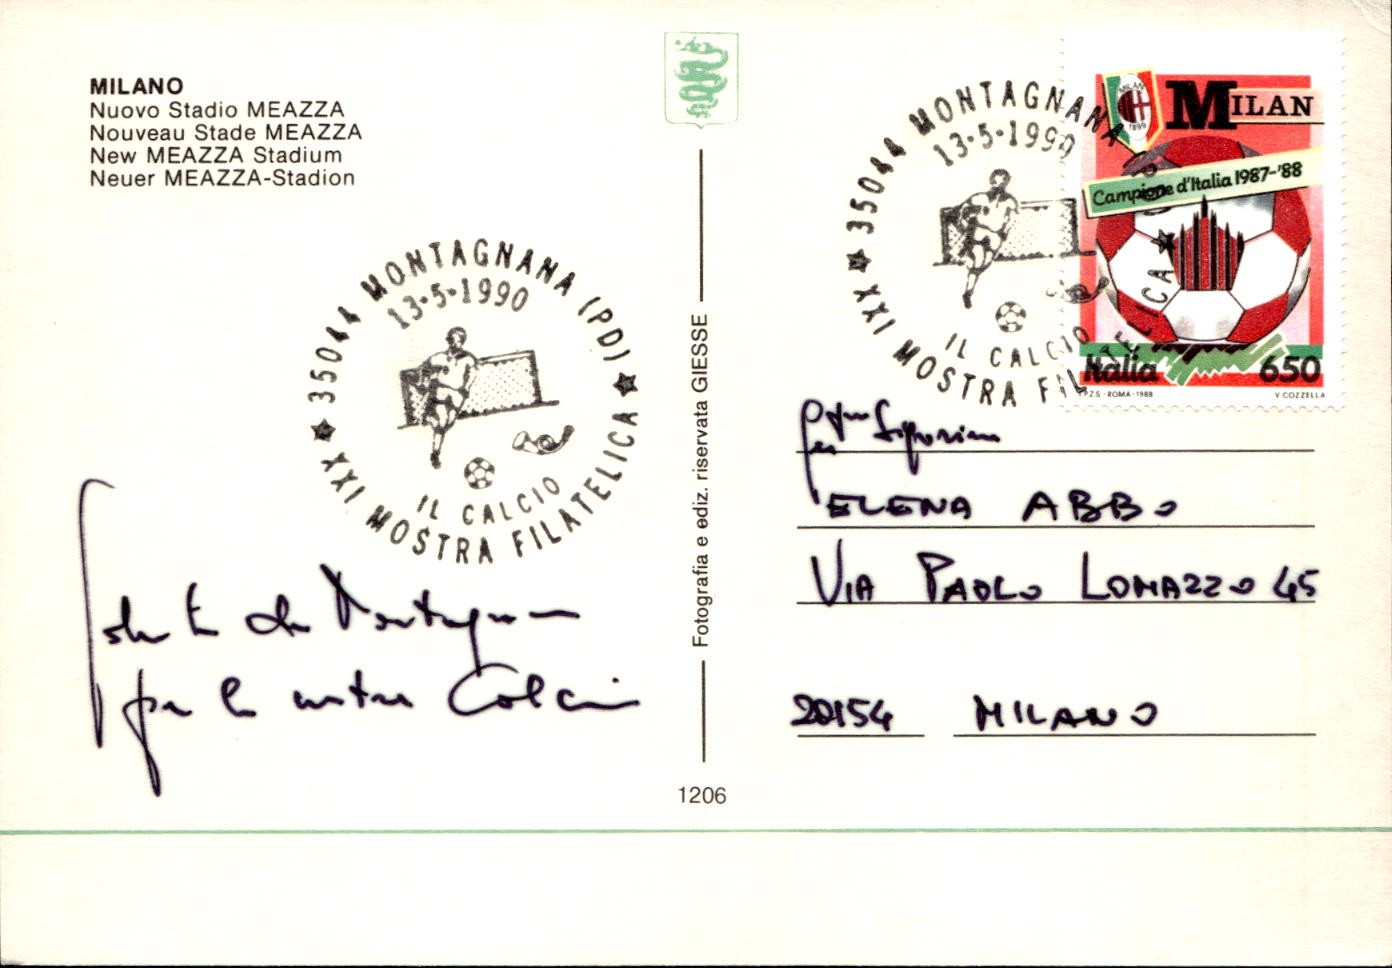 MILANO
Nuovo Stadio MEAZZA
Nouveau Stade MEAZZA
New MEAZZA Stadium
Neuer MEAZZA-Stadion
35044 MONTAGNANA (PD)
13-5-1990
IL CALCIO
XXI MOSTRA FILATELICA
da Montagnana
per la Calcio
Fotografia e ediz. riservata GIESSE
1206
35044 MONTAGNANA (PD)
13-5-1990
IL CALCIO
XXI MOSTRA FILATELICA
MILAN
1899
MILAN
Campione d'Italia 1987-'88
Italia 650
I.P.Z.S. - ROMA - 1988 V. COZZELLA
ELENA ABBO
VIA PAOLO LOMAZZO 45
20154 MILANO